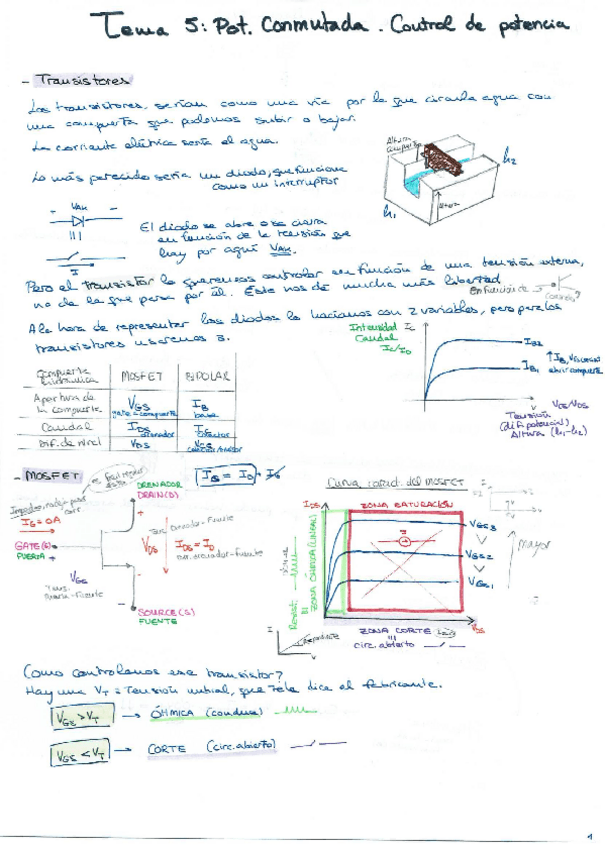 Tema 5: Pot. Conmutada. Control de potencia
- Transistores
Los transistores serían como una vía por la que circula agua con
una compuerta que podemos subir o bajar.
La corriente eléctrica sería el agua.
Altura compuerta
h2
h1
Lo más parecido sería un diodo, que funciona
como un interruptor
+ VAK -
El diodo se abre o se cierra
en función de la tensión que
hay por aquí VAK.
I
Pero el transistor lo queremos controlar en función de una tensión externa,
no de la que pasa por él. Esto nos da mucha más libertad.
En función de
A la hora de representar los diodos lo hacíamos con 2 variables, pero para los
transistores usaremos 3.
Intensidad IC
Caudal
IC/ID
IB2
IB1
abrir compuerta
VCE/VDS
Tensión
(dif. potencial)
Altura (h1-h2)
Compuerta MOSFET BIPOLAR
Apertura de la compuerta VGS gate=compuerta IB base
Caudal IDS drenador IC colector
Dif. de nivel VDS VCE
- MOSFET
DRENADOR
DRAIN(D)
IS = ID + IG
Curva caract. del MOSFET
IG = 0A
GATE(G)
PUERTA
VGS
VDS
Drenador-Fuente
IDS = ID
Puerta-Fuente
SOURCE(S)
FUENTE
IDS
ZONA SATURACIÓN
ZONA ÓHMICA (LINEAL)
VGS3
VGS2
VGS1
mayor
VDS
ZONA CORTE
circ. abierto
I
V
Como controlamos ese transistor?
Hay una VT = Tensión umbral, que te la dice el fabricante.
VGS > VT → ÓHMICA (conduce)
VGS < VT → CORTE (circ. abierto)
1